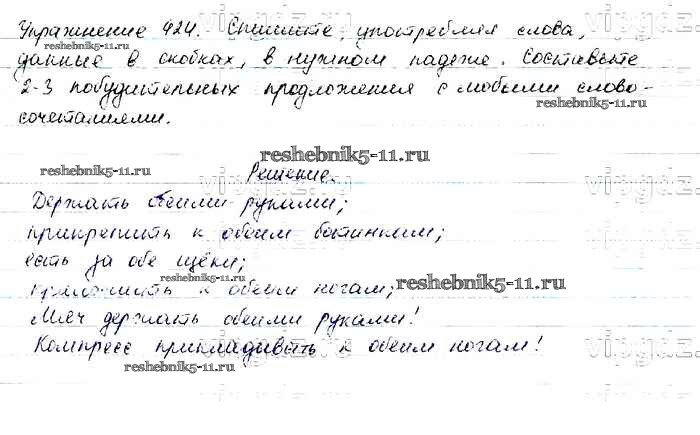 Упражнение 424. Спишите, употребляя слова,
данные в скобках, в нужном падеже. Составьте
2-3 побудительных предложения с любыми слово-
сочетаниями.
Решение.
Держать обеими руками;
прикрепить к обеим ботинкам;
есть за обе щёки;
приложить к обеим ногам;
Мяч держать обеими руками!
Компресс прикладывать к обеим ногам!
reshebnik5-11.ru
reshebnik5-11.ru
reshebnik5-11.ru
reshebnik5-11.ru
reshebnik5-11.ru
reshebnik5-11.ru
reshebnik5-11.ru
vipgdz.ru
vipgdz.ru
vipgdz.ru
vipgdz.ru